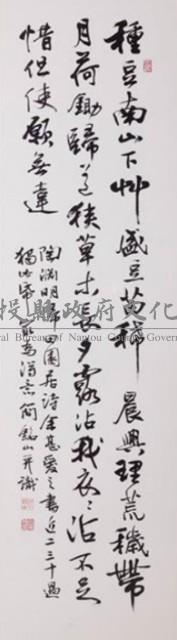 種豆南山下艸盛豆苗稀晨興理荒穢帶
月荷鋤歸道狹草木長夕露沾我衣〻沾不足
惜但使願無違
陶淵明歸田園居詩余甚愛之書近二三十過
獨此為得意簡銘山并識
投縣文化
ural Bureau of Nantou County